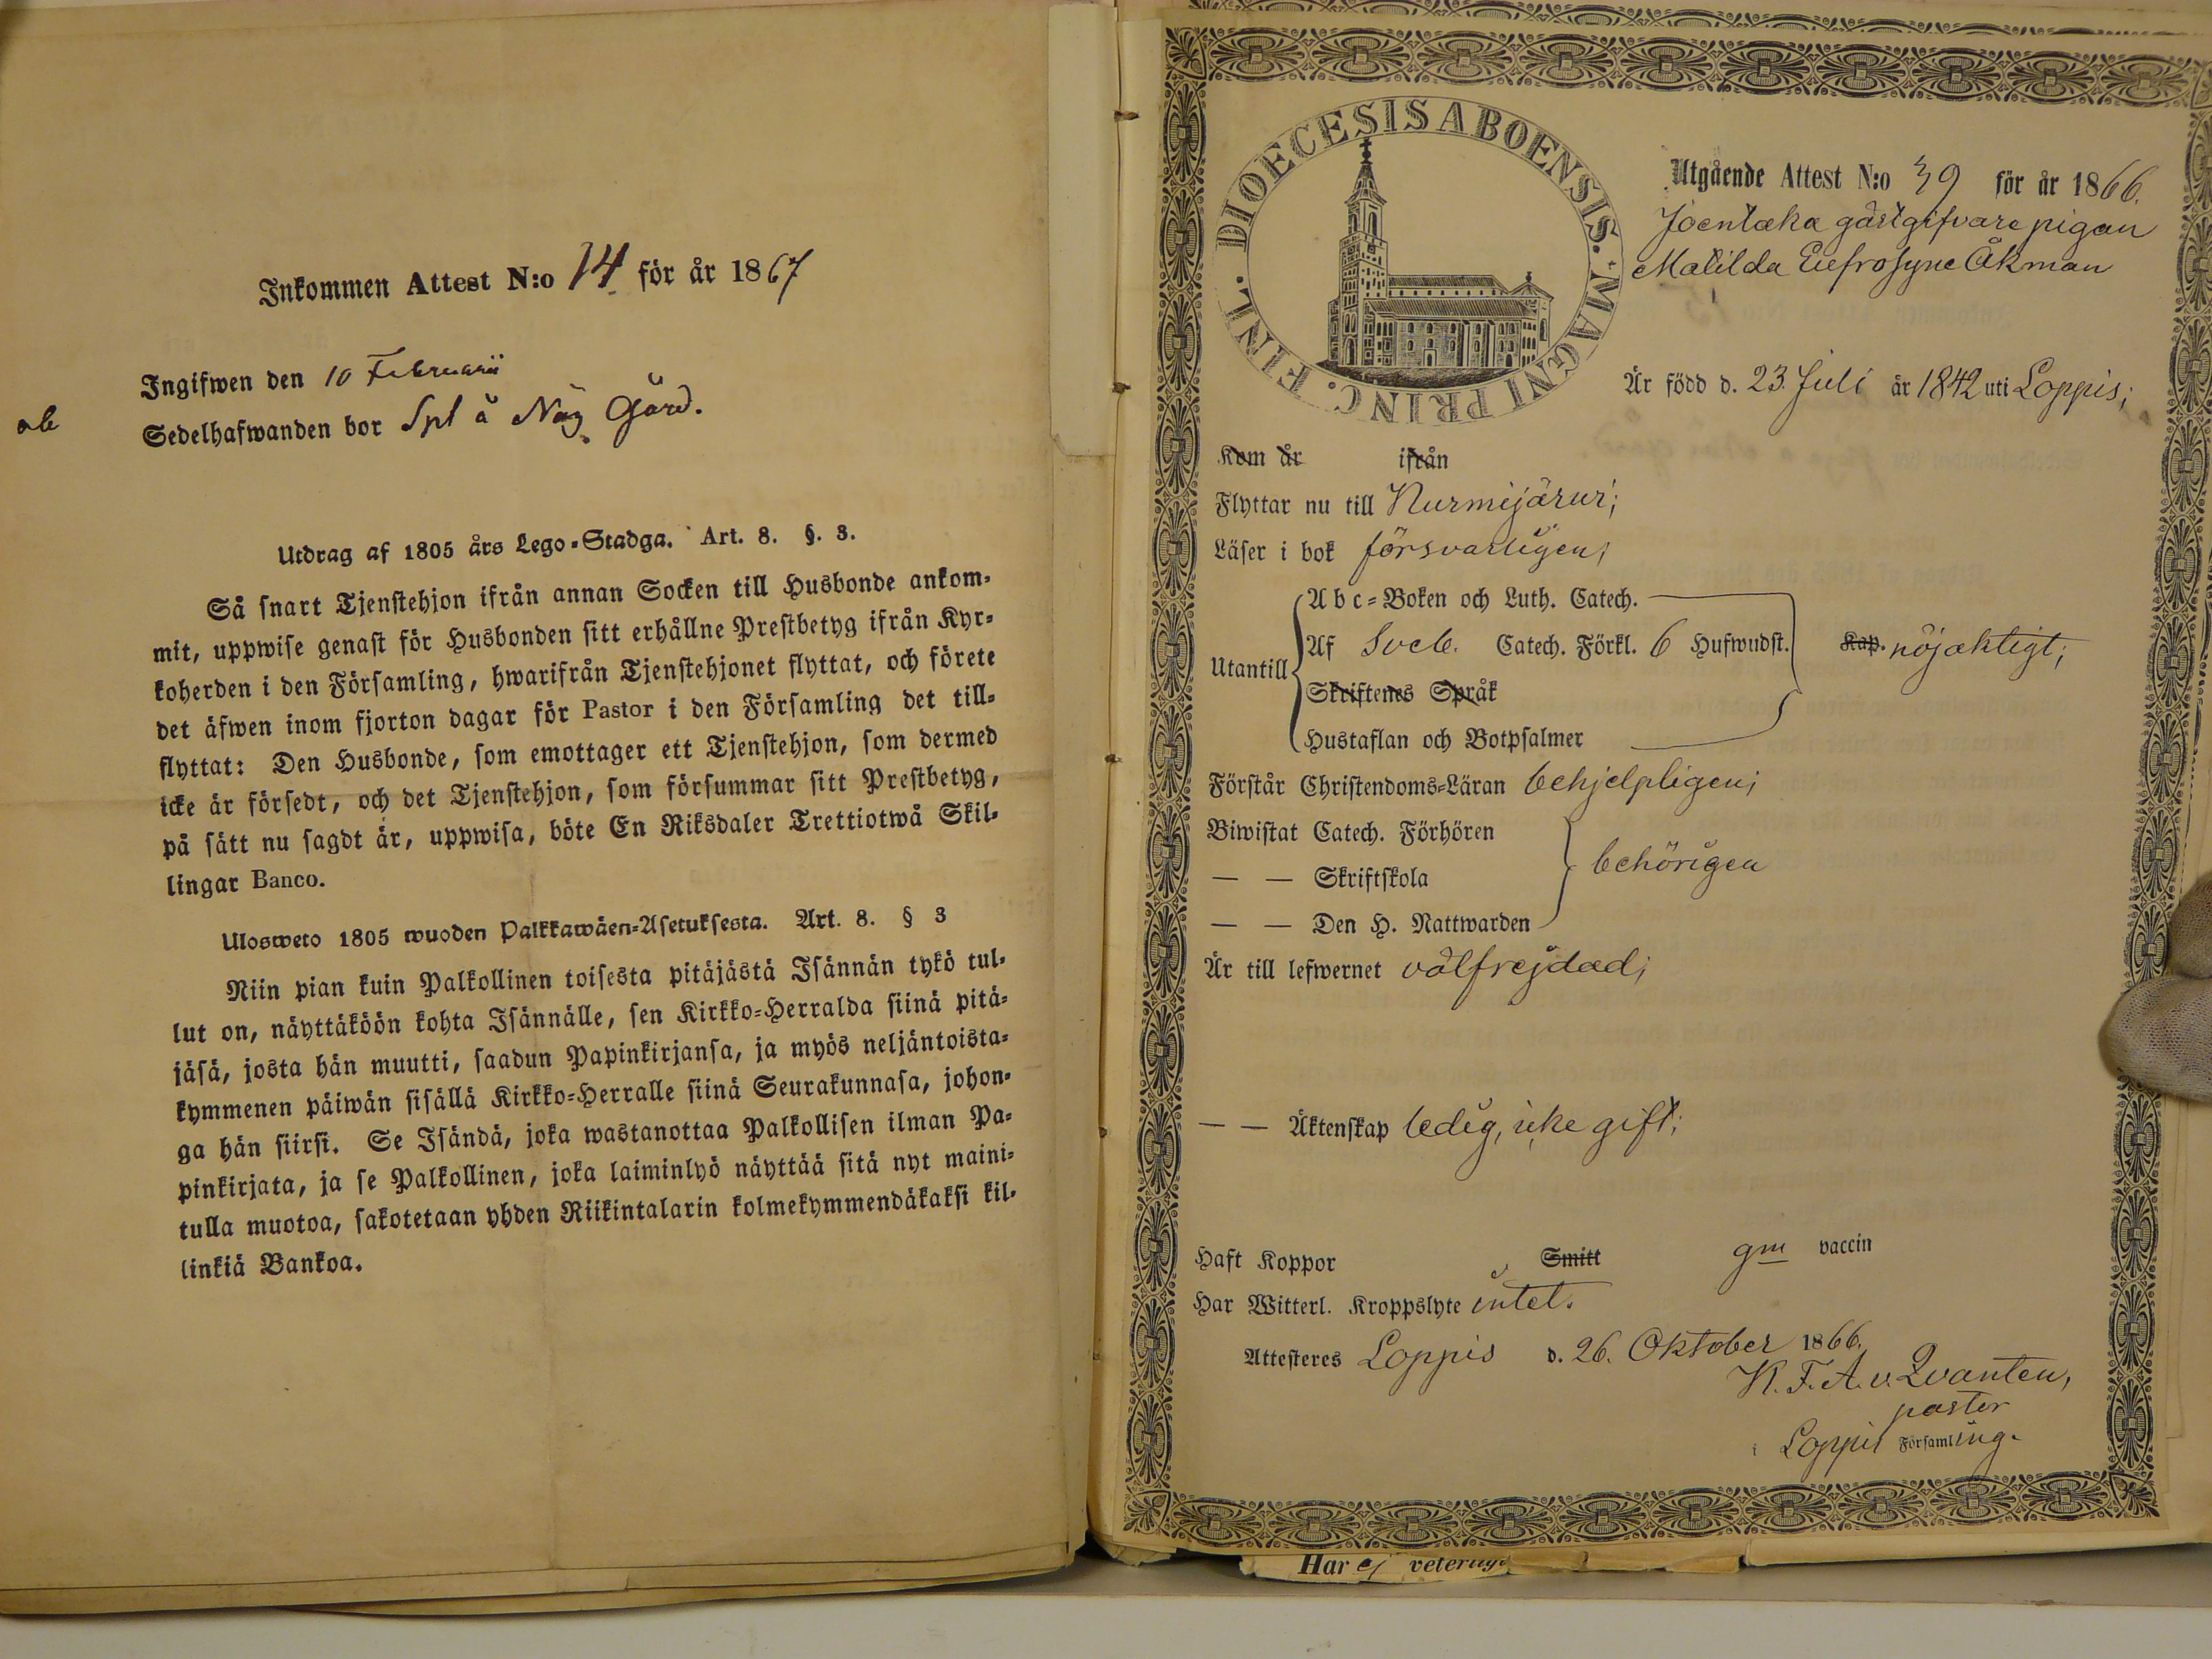 Inkommen Attest N:o 14 för år 1867
Ingifwen den 10 Februarii
ab
Sedelhafwanden bor Spl å Näs Gård.
Utdrag af 1805 års Lego-Stadga. Art. 8. §. 3.
Så snart Tjenstehjon ifrån annan Socken till Husbonde ankom-
mit, uppwise genast för Husbonden sitt erhållne Prestbetyg ifrån Kyr-
koherden i den Församling, hwarifrån Tjenstehjonet flyttat, och förete
det äfwen inom fjorton dagar för Pastor i den Församling det till-
flyttat: Den Husbonde, som emottager ett Tjenstehjon, som dermed
icke är försedt, och det Tjenstehjon, som försummar sitt Prestbetyg,
på sätt nu sagdt är, uppwisa, böte En Riksdaler Trettiotwå Skil-
lingar Banco.
Ulosweto 1805 wuoden Palkkawäen-Asetuksesta. Art. 8. § 3
Niin pian kuin Palkollinen toisesta pitäjästä Isännän tykö tul-
lut on, näyttäköön kohta Isännälle, sen Kirkko-Herralda siinä pitä-
jäsä, josta hän muutti, saadun Papinkirjansa, ja myös neljäntoista-
kymmenen päiwän sisällä Kirkko-Herralle siinä Seurakunnasa, johon-
ga hän siirsi. Se Isändä, joka wastanottaa Palkollisen ilman Pa-
pinkirjata, ja se Palkollinen, joka laiminlyö näyttää sitä nyt maini-
tulla muotoa, sakotetaan yhden Riikintalarin kolmekymmendäkaksi kil-
linkiä Bankoa.
DIOECESIS ABOENSIS. MAGNI PRINC. FINL.
Utgående Attest N:o 39 för år 1866.
Joentaka gästgifvare pigan
Matilda Eufrosyne Åkman
Är född d. 23. Juli år 1842 uti Loppis;
Kom år ifrån
Flyttar nu till Nurmijärvi;
Läser i bok försvarligen;
Utantill
Abc-Boken och Luth. Catech.
Af Sveb. Catech. Förkl. 6 Hufwudst. Kap. nöjaktigt;
Skriftenes Språk
Hustaflan och Botpsalmer
Förstår Christendoms-Läran behjelpligen;
Biwistat Catech. Förhören
— — Skriftskola behörigen
— — Den H. Nattwarden
Är till lefwernet välfrejdad;
— — Äktenskap ledig, icke gift;
Haft Koppor Smitt gm vaccin
Har Witterl. Kroppslyte intet.
Attesteres Loppis d. 26. Oktober 1866.
K. F. A. v. Qvanten,
pastor
i Loppis Församling.
Har ej veterlig